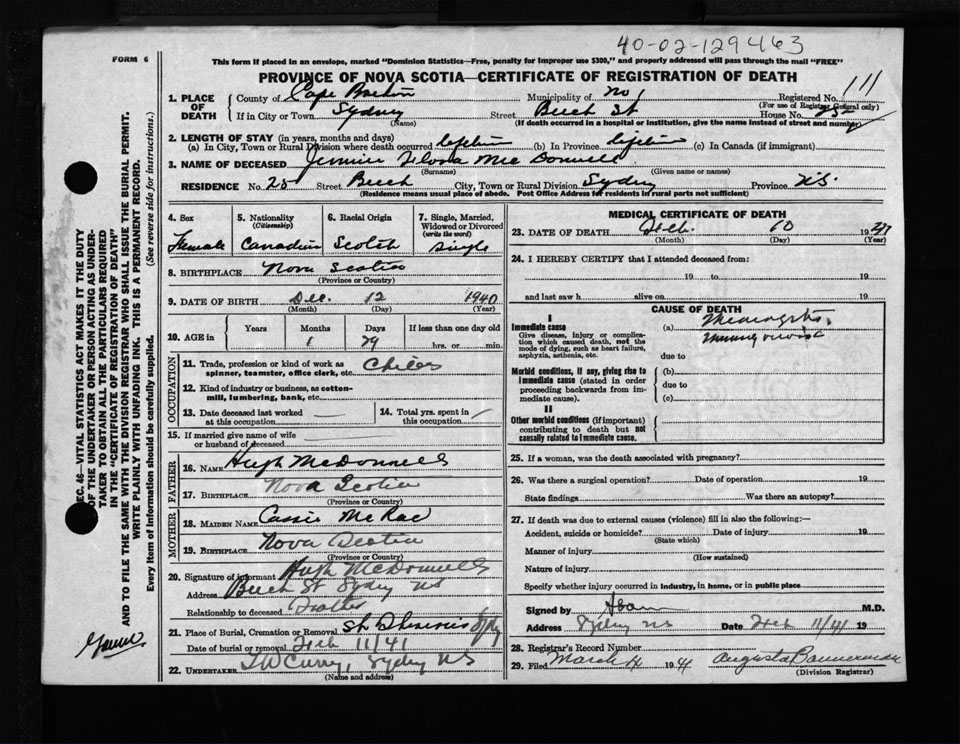 40-02-129463
FORM 6
This form if placed in an envelope, marked "Dominion Statistics—Free, penalty for improper use $300," and properly addressed will pass through the mail "FREE"
PROVINCE OF NOVA SCOTIA—CERTIFICATE OF REGISTRATION OF DEATH
1. PLACE OF DEATH { County of Cape Breton Municipality of No Registered No. 111
(For use of Registrar General only)
If in City or Town Sydney Street Beech St House No. 25
(Name) (If death occurred in a hospital or institution, give the name instead of street and number)
2. LENGTH OF STAY (in years, months and days)
(a) In City, Town or Rural Division where death occurred lifetime (b) In Province lifetime (c) In Canada (if immigrant)
3. NAME OF DECEASED Flora Mac Donnell
(Surname) (Given name or names)
RESIDENCE No. 25 Street Beech City, Town or Rural Division Sydney Province N.S.
(Residence means usual place of abode. Post Office Address for residents in rural parts not sufficient)
4. Sex
Female
5. Nationality
(Citizenship)
Canadian
6. Racial Origin
Scotch
7. Single, Married, Widowed or Divorced
(write the word)
Single
8. BIRTHPLACE Nova Scotia
(Province or Country)
9. DATE OF BIRTH Dec. 12 1940
(Month) (Day) (Year)
10. AGE in { Years Months Days If less than one day old
1 29 hrs. or min.
OCCUPATION
11. Trade, profession or kind of work as spinner, teamster, office clerk, etc. Child
12. Kind of industry or business, as cotton-mill, lumbering, bank, etc.
13. Date deceased last worked at this occupation
14. Total yrs. spent in this occupation
15. If married give name of wife or husband of deceased
FATHER
16. NAME Hugh McDonnell
17. BIRTHPLACE Nova Scotia
(Province or Country)
MOTHER
18. MAIDEN NAME Cassie McRae
19. BIRTHPLACE Nova Scotia
(Province or Country)
20. Signature of informant Hugh McDonnell
Address Beech St Sydney NS
Relationship to deceased Father
21. Place of Burial, Cremation or Removal Sydney
Date of burial or removal Feb 11/41
22. UNDERTAKER Curry, Sydney NS
(Name and address)
MEDICAL CERTIFICATE OF DEATH
23. DATE OF DEATH Feb. 10 1941
(Month) (Day) (Year)
24. I HEREBY CERTIFY that I attended deceased from:
19 to 19
and last saw h alive on 19
CAUSE OF DEATH
I
Immediate cause
Give disease, injury or complication which caused death, not the mode of dying, such as heart failure, asphyxia, asthenia, etc.
(a)
due to
Morbid conditions, if any, giving rise to immediate cause (stated in order proceeding backwards from immediate cause).
(b)
due to
(c)
II
Other morbid conditions (if important) contributing to death but not causally related to immediate cause.
25. If a woman, was the death associated with pregnancy?
26. Was there a surgical operation? Date of operation 19
State findings Was there an autopsy?
27. If death was due to external causes (violence) fill in also the following:—
Accident, suicide or homicide? Date of injury 19
(State which)
Manner of injury
(How sustained)
Nature of injury
Specify whether injury occurred in industry, in home, or in public place
Signed by M.D.
Address Sydney NS Date Feb 11/41 19
28. Registrar's Record Number
29. Filed March 1941 Augusta Bannerman
(Division Registrar)
SEC. 46—VITAL STATISTICS ACT MAKES IT THE DUTY
OF THE UNDERTAKER OR PERSON ACTING AS UNDERTAKER TO OBTAIN ALL THE PARTICULARS REQUIRED
IN THE "CERTIFICATE OF REGISTRATION OF DEATH"
AND TO FILE THE SAME WITH THE DIVISION REGISTRAR WHO SHALL ISSUE THE BURIAL PERMIT.
WRITE PLAINLY WITH UNFADING INK. THIS IS A PERMANENT RECORD.
Every item of information should be carefully supplied. (See reverse side for instructions.)